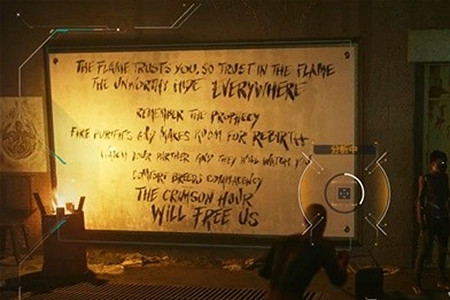 THE FLAME TRUSTS YOU, SO TRUST IN THE FLAME
THE UNWORTHY HIDE EVERYWHERE
REMEMBER THE PROPHECY
FIRE PURIFIES & MAKES ROOM FOR REBIRTH
WATCH YOUR PARTNER AND THEY WILL WATCH
COMFORT BREEDS COMPLACENCY
THE CRIMSON HOUR
WILL FREE US
分析中